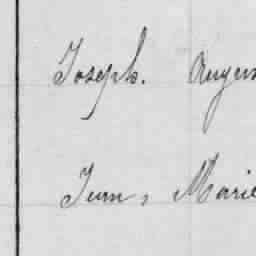 Joseph. Augus
Jum, Marie